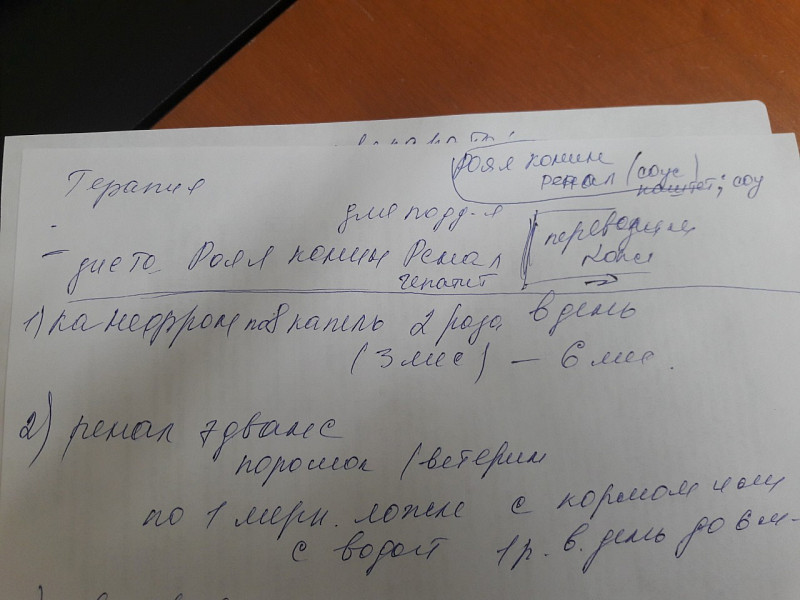 Терапия
Роял конин
ренал (соус)
паштет; соу
для подд-я
- диета Роял конин Ренал
гепатит
переводим
1) канефрон по 8 капель 2 раза в день
(3 мес) – 6 мес.
2) ренал эдванс
порошок (ветерин
по 1 мерн. ложке с кормом или
с водой 1 р. в. день до 6 м-